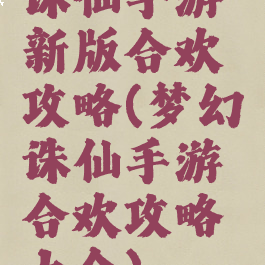 诛仙手游
新版合欢
攻略(梦幻
诛仙手游
合欢攻略
大全)